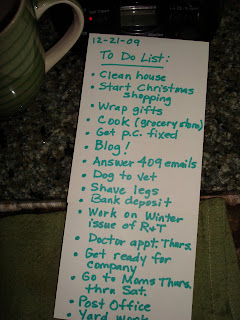 12-21-09
To Do List:
• Clean house
• Start Christmas
shopping
• Wrap gifts
• Cook (grocery store)
• Get p.c. fixed
• Blog!
• Answer 409 emails
• Dog to vet
• Shave legs
• Bank deposit
• Work on Winter
issue of R+T
• Doctor appt. Thurs.
• Get ready for
company
• Go to Moms Thurs.
thru Sat.
• Post Office
• Yard work